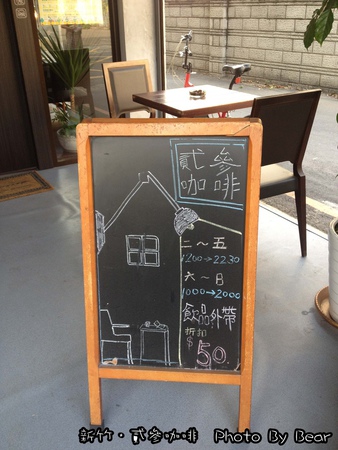 貳參
咖啡
二～五
1200→22:30
六～日
1000→2000
飲品外帶
折扣
$50.
新竹·貳參咖啡 Photo By Bear